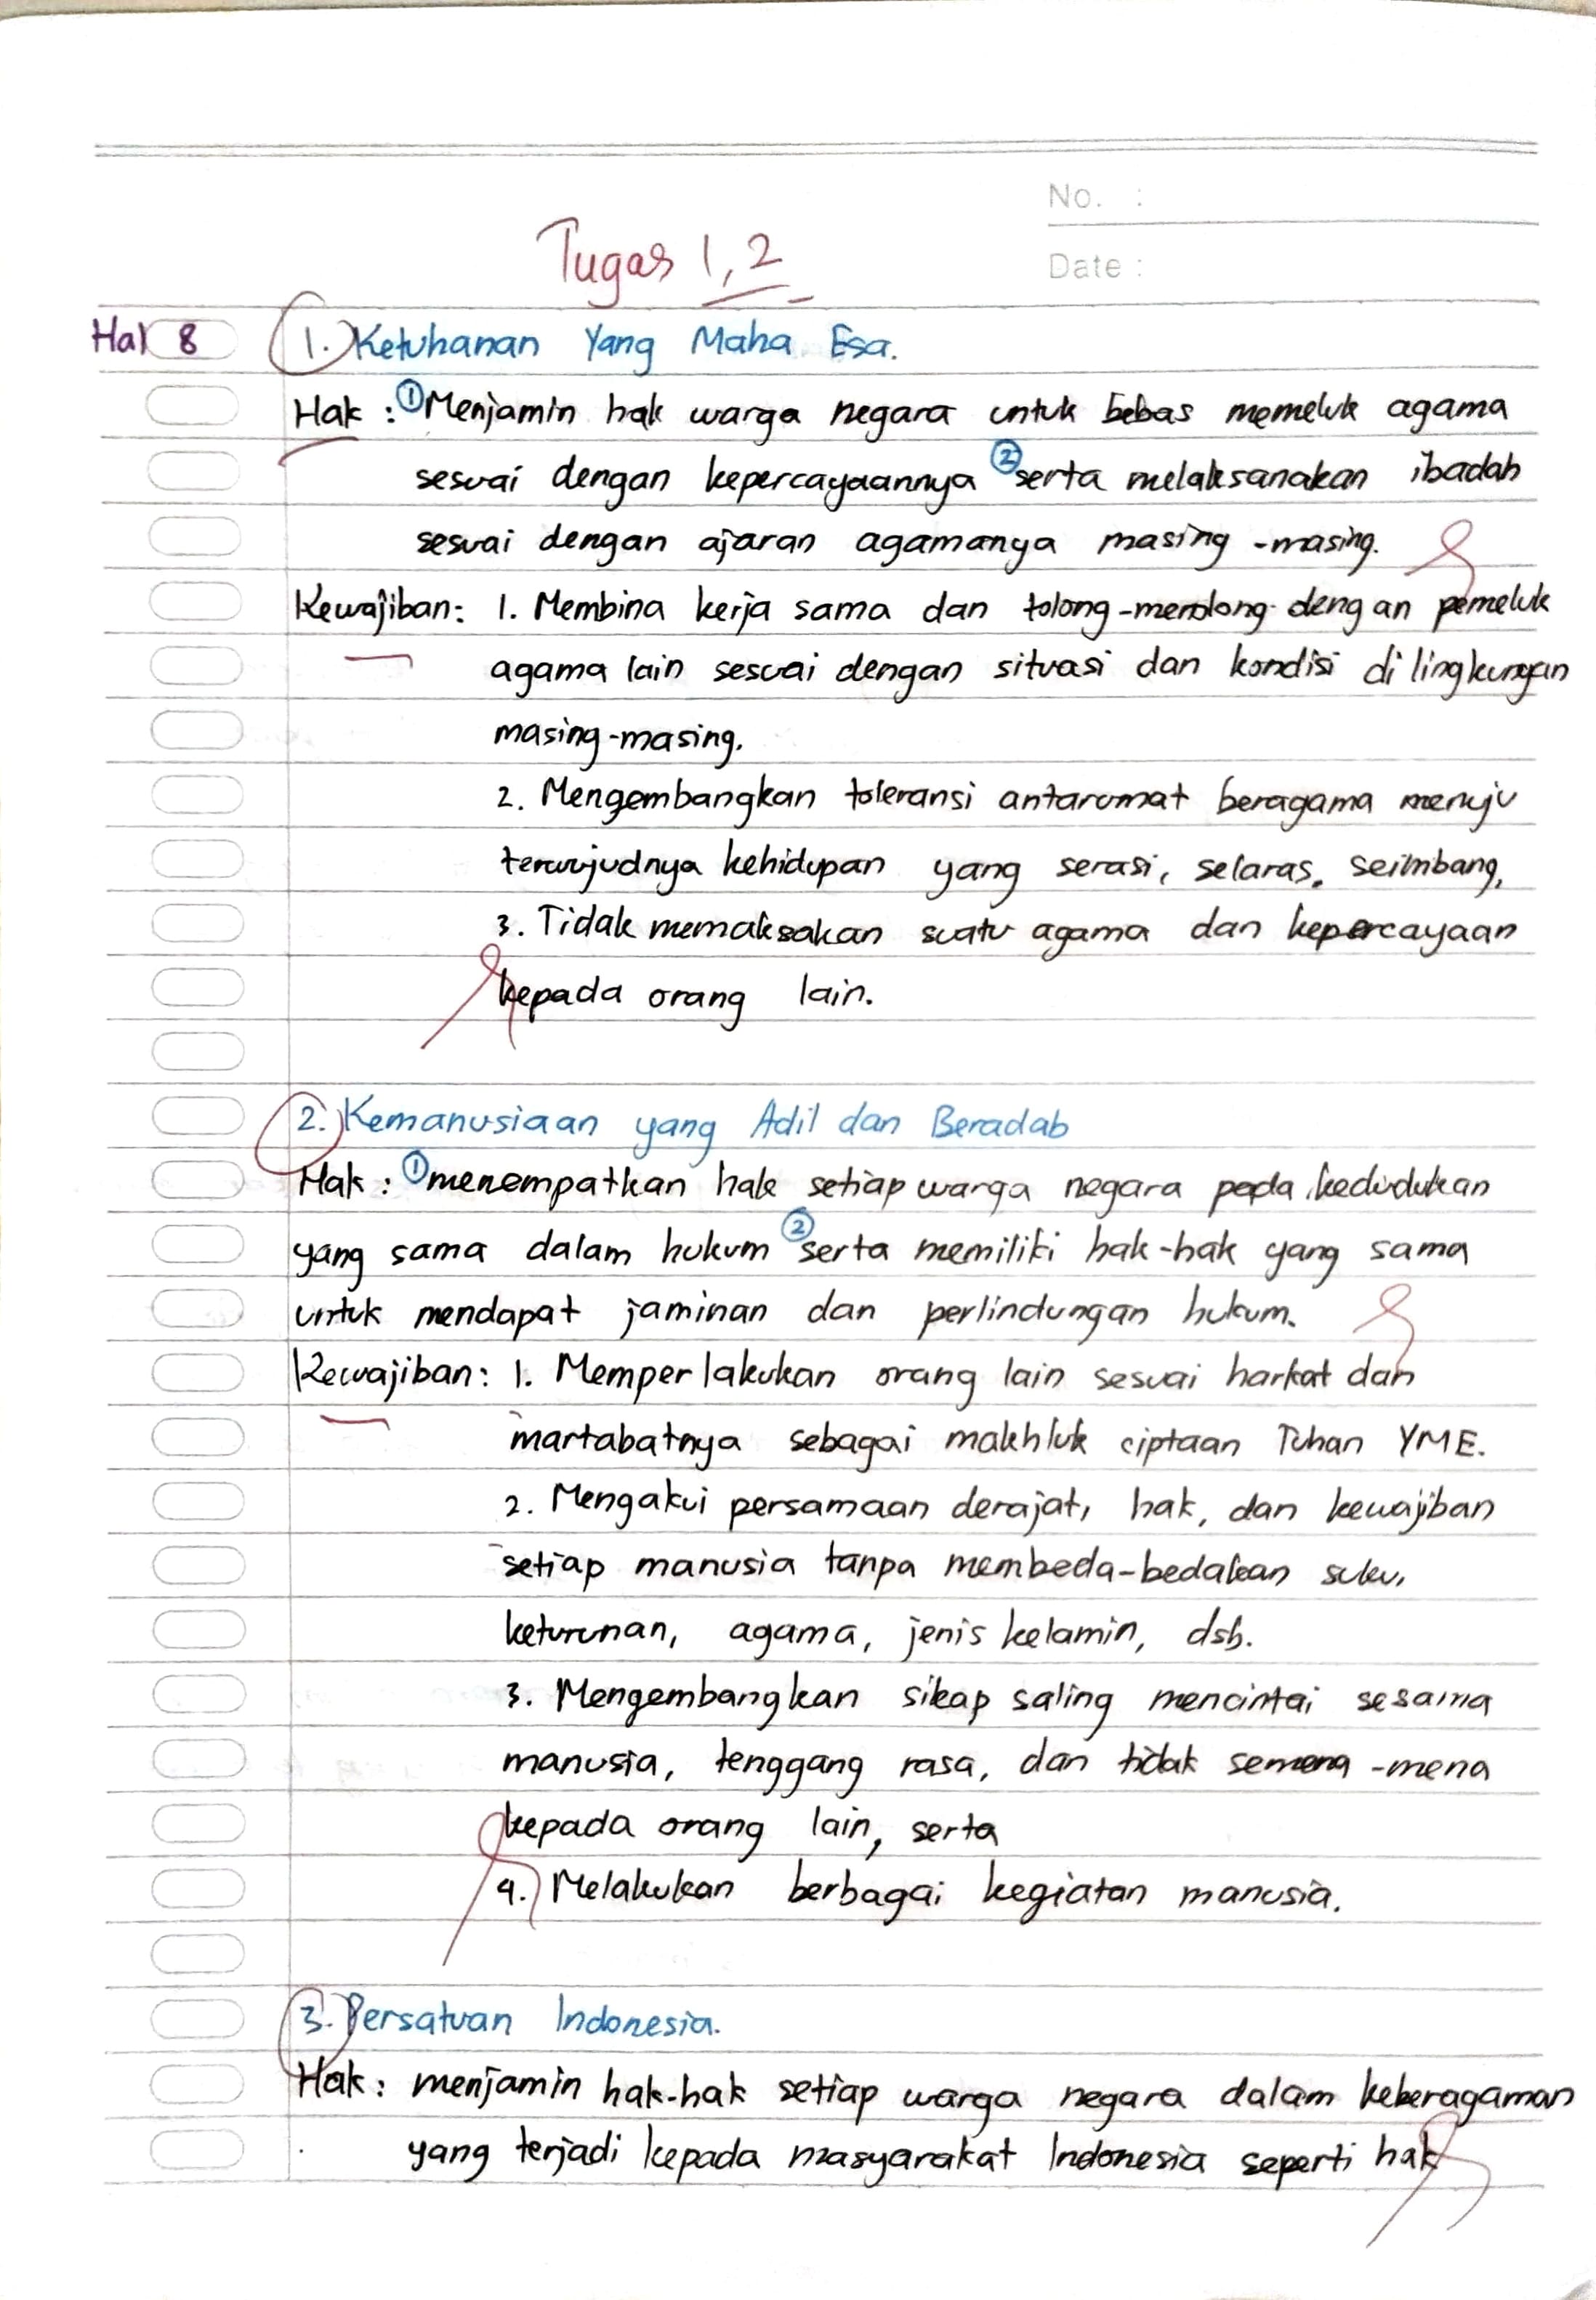 No. :
Tugas 1, 2
Date :
Hal 8
1. Ketuhanan Yang Maha Esa.
Hak : ① Menjamin hak warga negara untuk bebas memeluk agama
sesuai dengan kepercayaannya ② serta melaksanakan ibadah
sesuai dengan ajaran agamanya masing-masing.
Kewajiban: 1. Membina kerja sama dan tolong-menolong dengan pemeluk
agama lain sesuai dengan situasi dan kondisi di lingkungan
masing-masing.
2. Mengembangkan toleransi antarumat beragama menuju
terwujudnya kehidupan yang serasi, selaras, seimbang,
3. Tidak memaksakan suatu agama dan kepercayaan
kepada orang lain.
2. Kemanusiaan yang Adil dan Beradab
Hak : ① menempatkan hak setiap warga negara pada kedudukan
yang sama dalam hukum ② serta memiliki hak-hak yang sama
untuk mendapat jaminan dan perlindungan hukum.
Kewajiban: 1. Memperlakukan orang lain sesuai harkat dan
martabatnya sebagai makhluk ciptaan Tuhan YME.
2. Mengakui persamaan derajat, hak, dan kewajiban
setiap manusia tanpa membeda-bedakan suku,
keturunan, agama, jenis kelamin, dsb.
3. Mengembangkan sikap saling mencintai sesama
manusia, tenggang rasa, dan tidak semena-mena
kepada orang lain, serta
4. Melakukan berbagai kegiatan manusia.
3. Persatuan Indonesia.
Hak : menjamin hak-hak setiap warga negara dalam keberagaman
yang terjadi kepada masyarakat Indonesia seperti hak